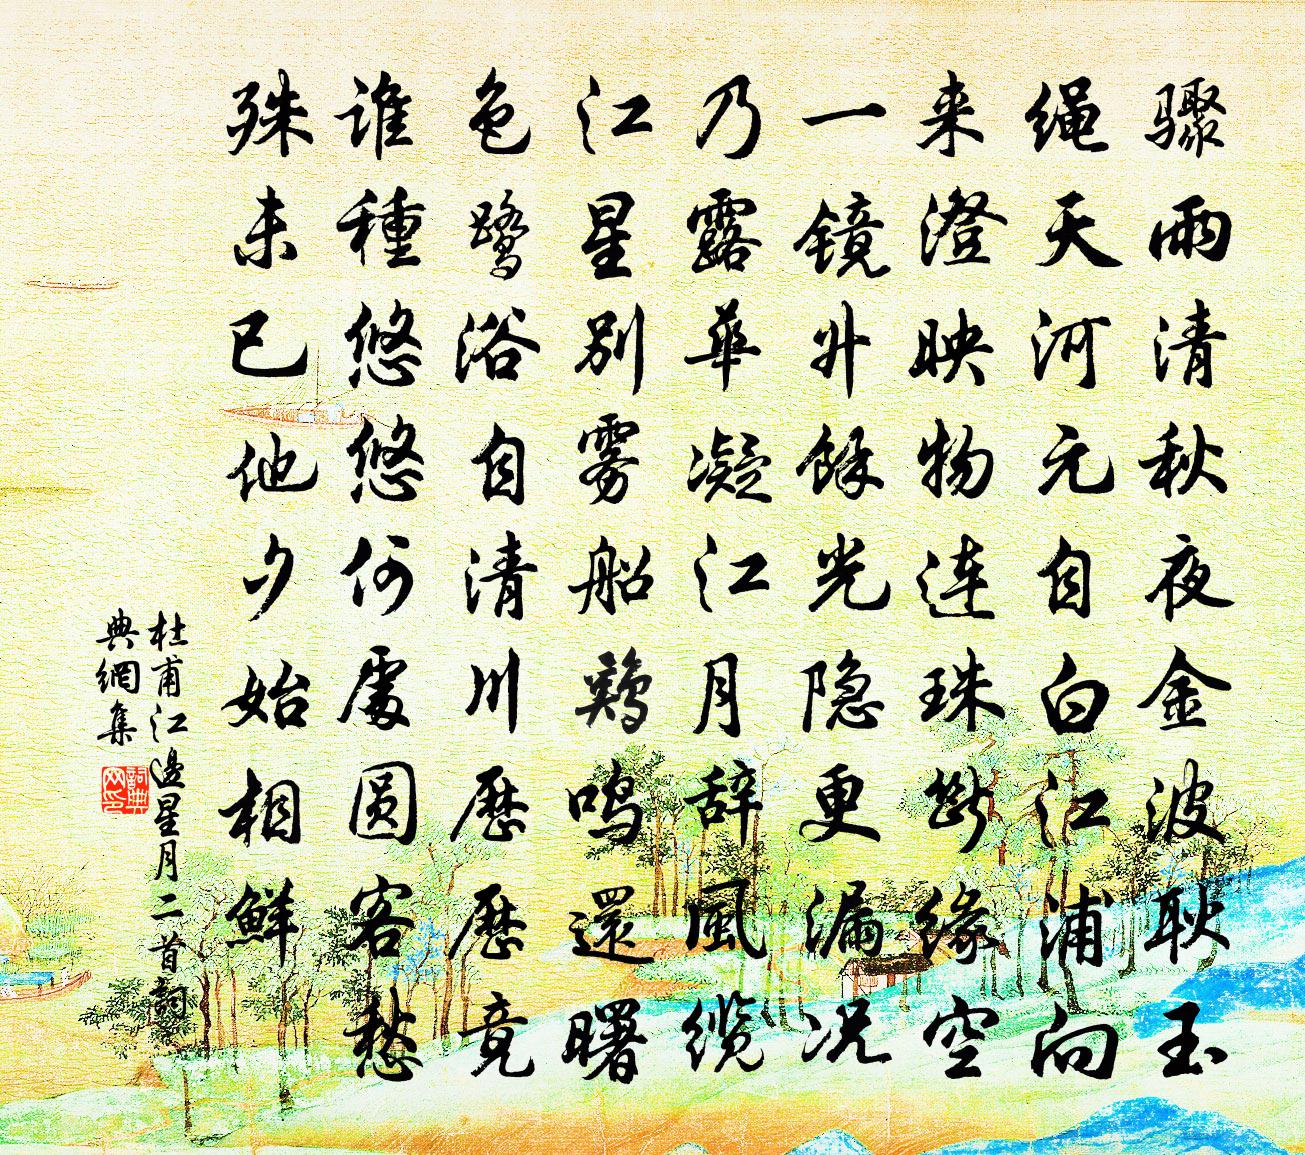 骤雨清秋夜金波耿玉
绳天河元自白江浦向
来澄映物连珠断缘空
一镜升馀光隐更漏况
乃露華凝江月辞風缆
江星别雾船鸡鸣還曙
色鹭浴自清川歷歷竟
谁種悠悠何處圆客愁
殊未已他夕始相鲜
杜甫江邊星月二首詞
典網集
詞典网印